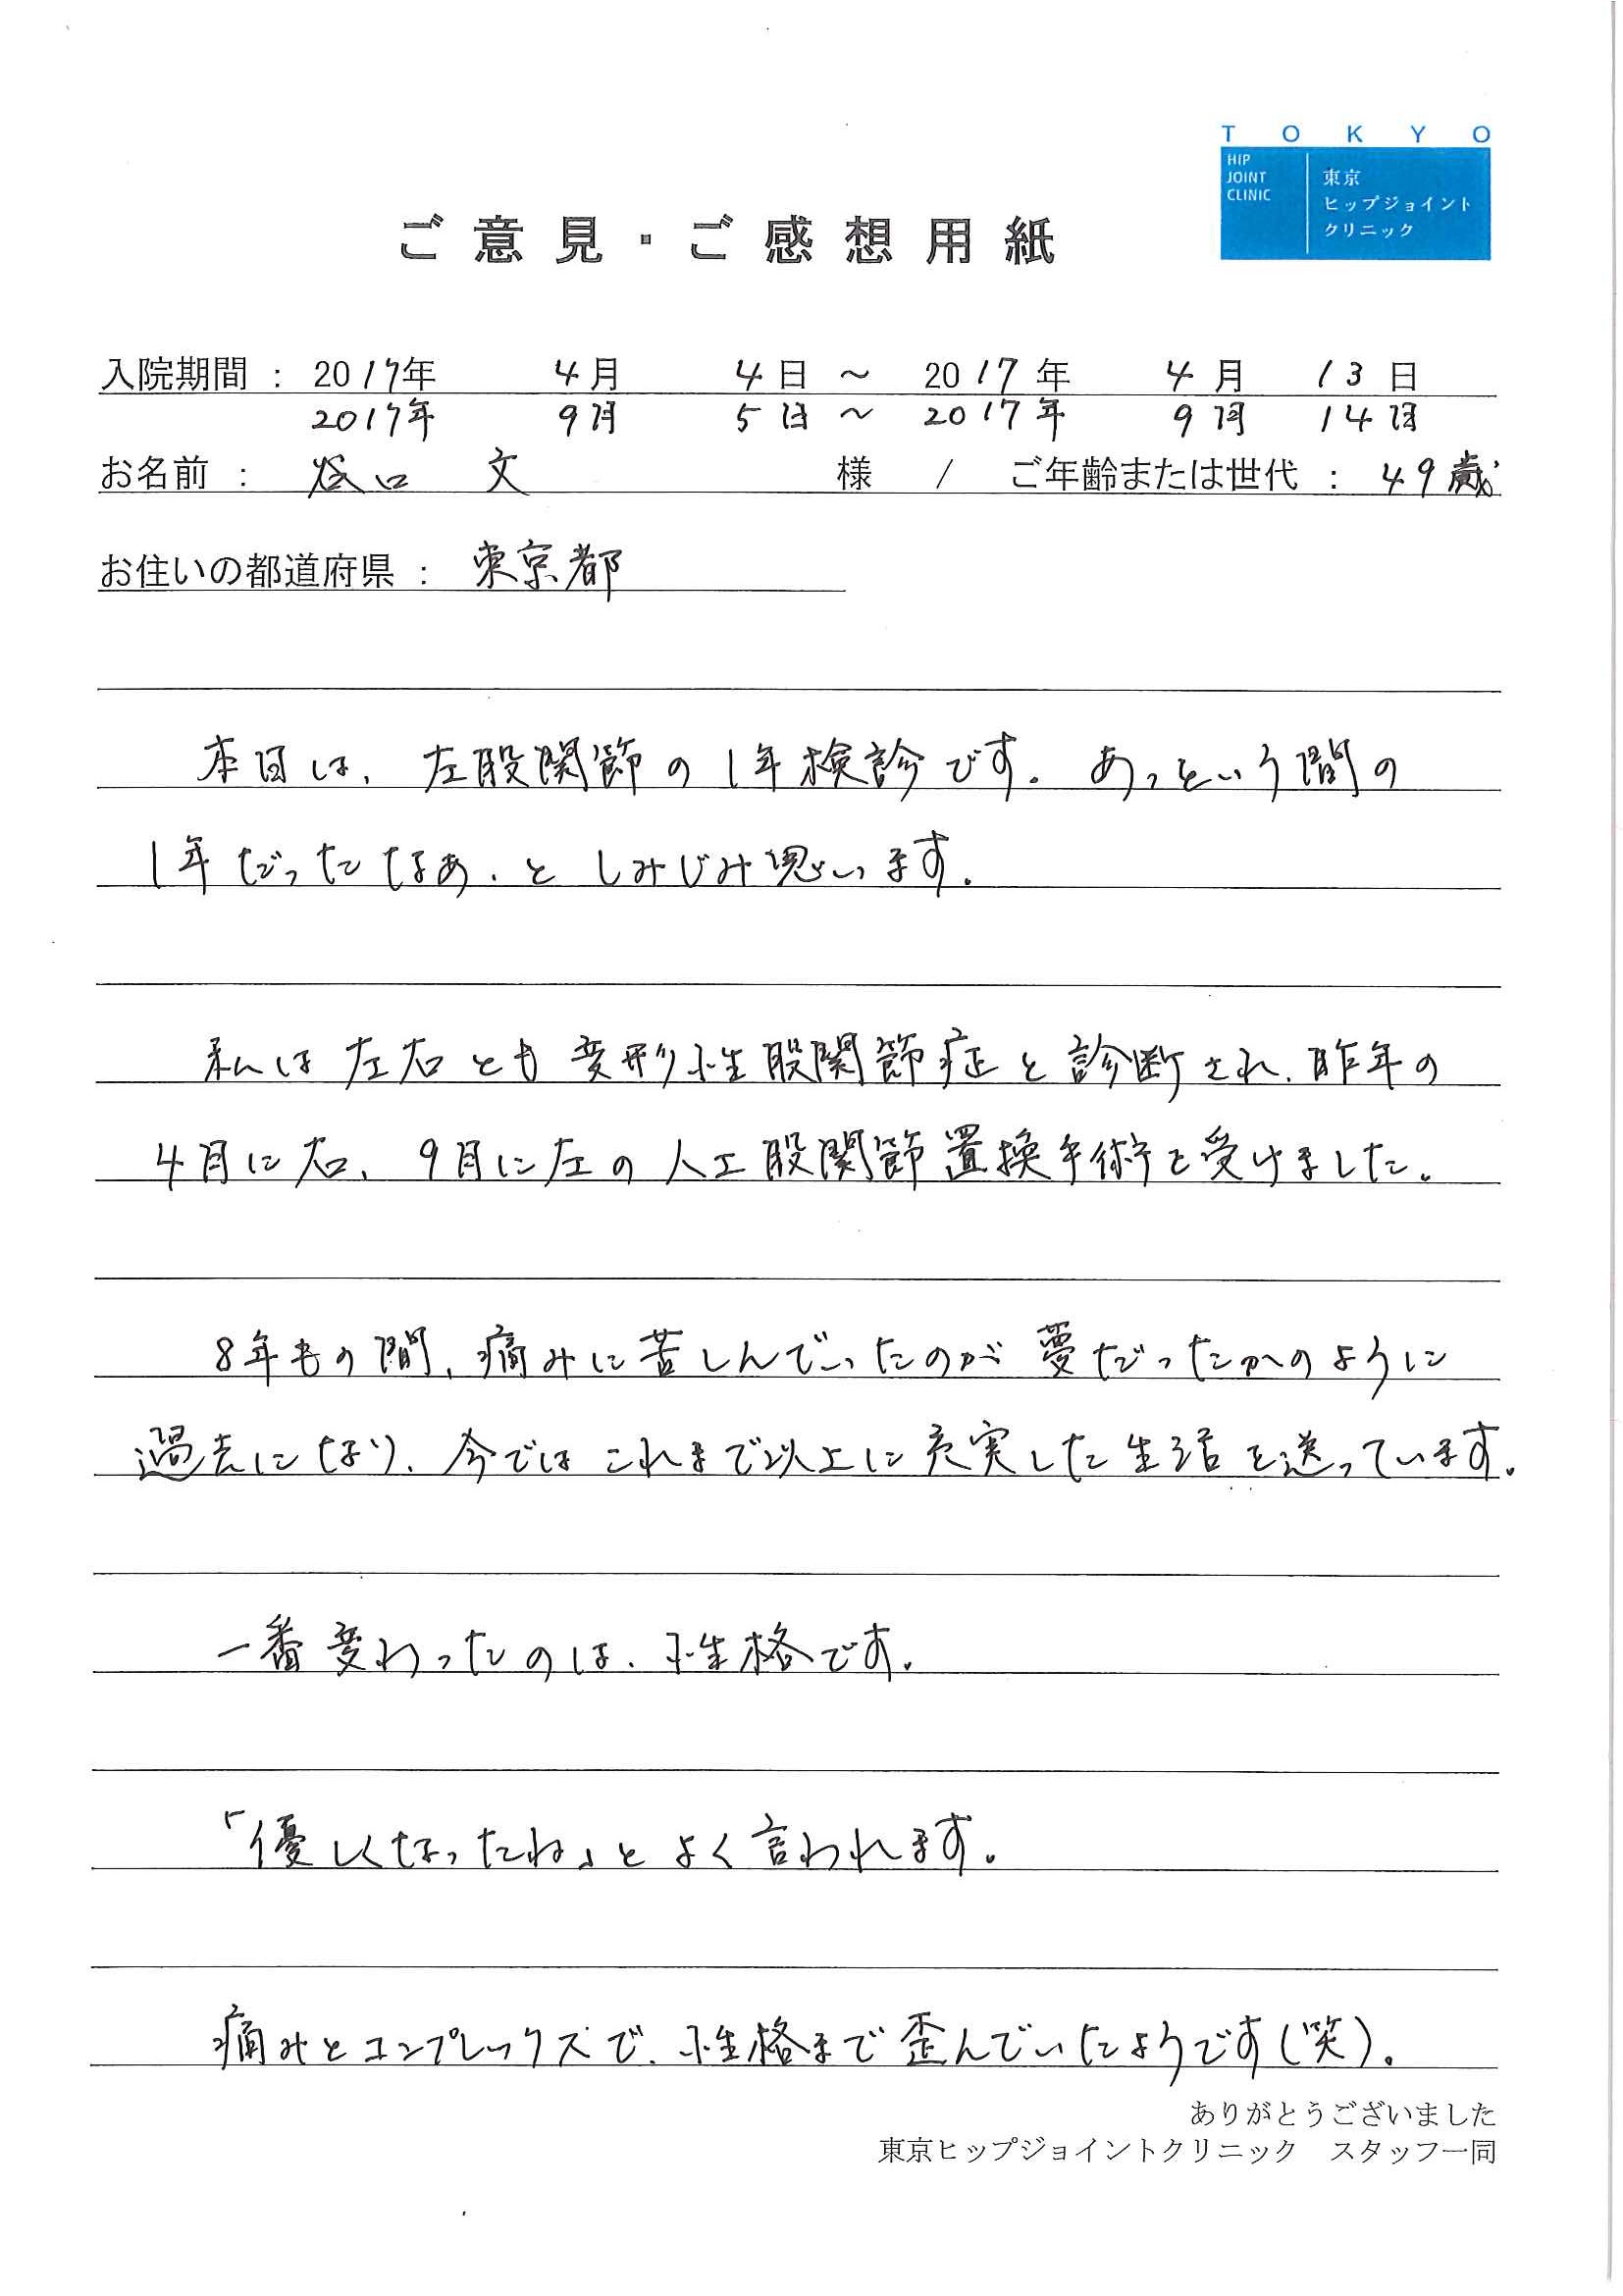 TOKYO
HIP
JOINT
CLINIC
東京
ヒップジョイント
クリニック
ご意見・ご感想用紙
入院期間 : 2017年 4月 4日 ～ 2017年 4月 13日
2017年 9月 5日 ～ 2017年 9月 14日
お名前 : 谷口 文 様 / ご年齢または世代 : 49歳
お住いの都道府県 : 東京都
本日は、左股関節の1年検診です。あっという間の
1年だったなぁ、としみじみ思います。
私は左右とも変形性股関節症と診断され、昨年の
4月に右、9月に左の人工股関節置換手術を受けました。
8年もの間、痛みに苦しんでいたのが夢だったかのように
過去になり、今ではこれまで以上に充実した生活を送っています。
一番変わったのは、性格です。
「優しくなったね」とよく言われます。
痛みとコンプレックスで、性格まで歪んでいたようです(笑)。
ありがとうございました
東京ヒップジョイントクリニック スタッフ一同